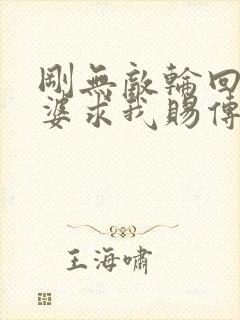 剛無敵輪回
婆求我賜傳
王海嘯